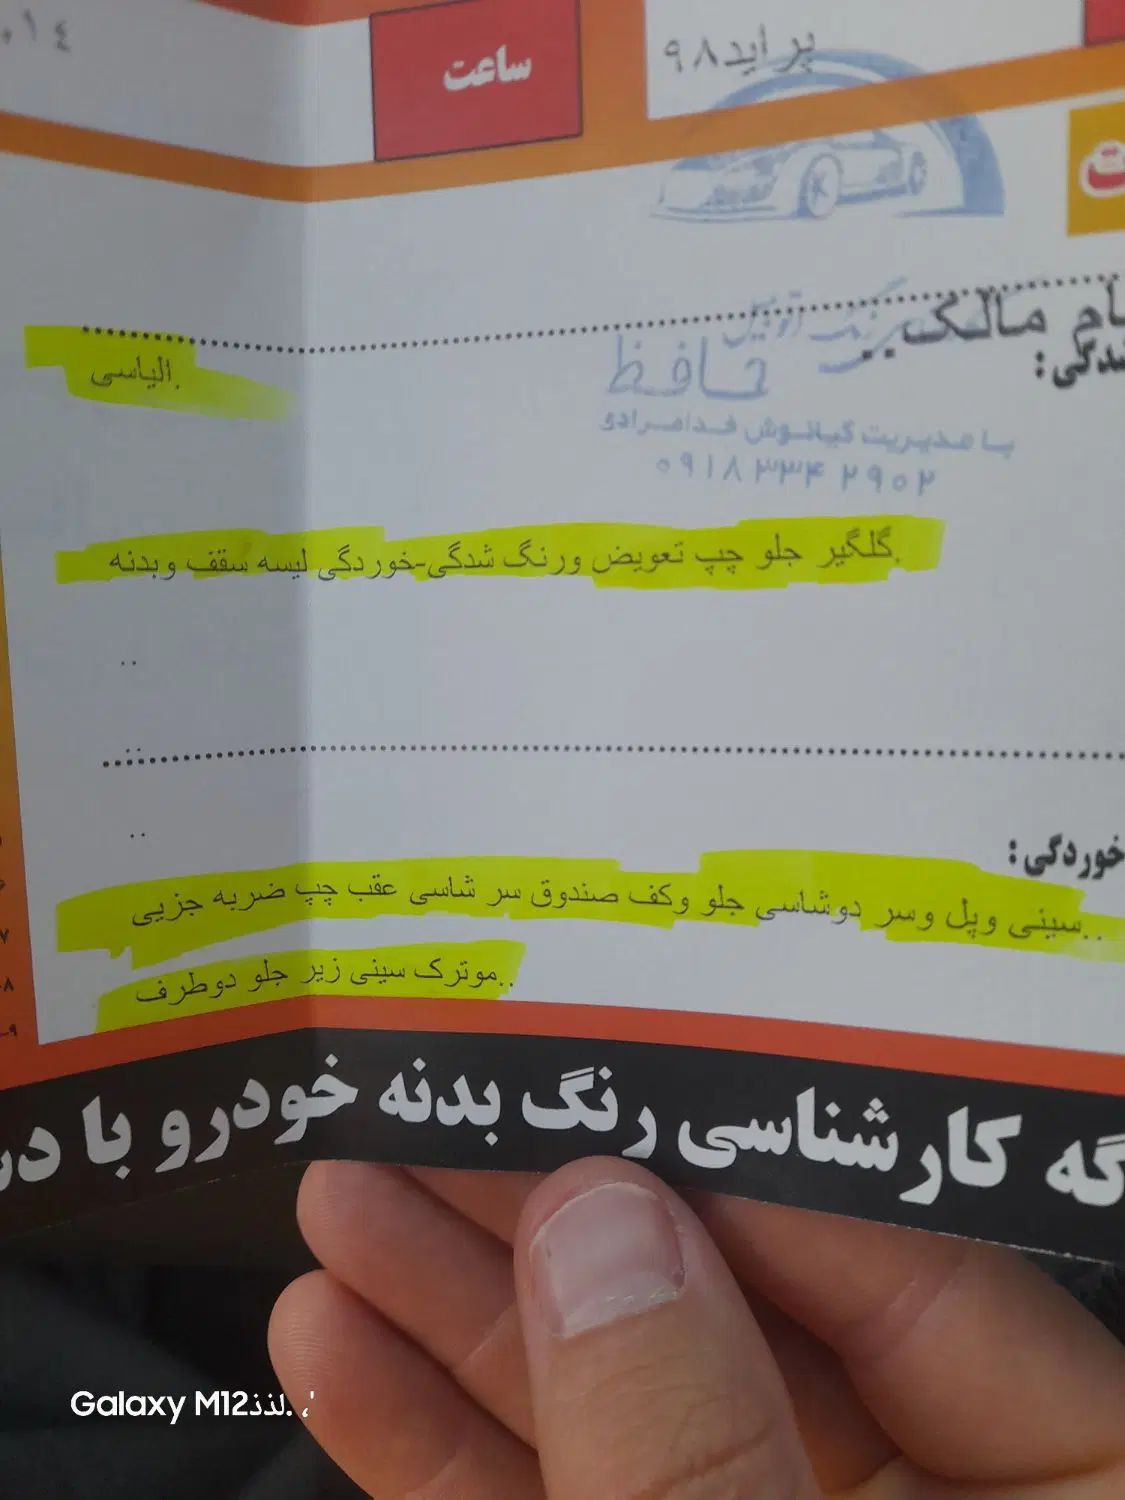 ساعت
پراید۹۸
نام مالک..
شدگی:
.الیاسی
حافظ
با مدیریت کیانوش خدامرادی
۰۹۱۸ ۳۳۴ ۲۹۰۲
.گلگیر جلو چپ تعویض ورنگ شدگی-خوردگی لیسه سقف وبدنه
..
..
..
خوردگی:
..سینی وپل وسر دوشاسی جلو وکف صندوق سر شاسی عقب چپ ضربه جزیی
..موترک سینی زیر جلو دوطرف
گه کارشناسی رنگ بدنه خودرو با
Galaxy M12